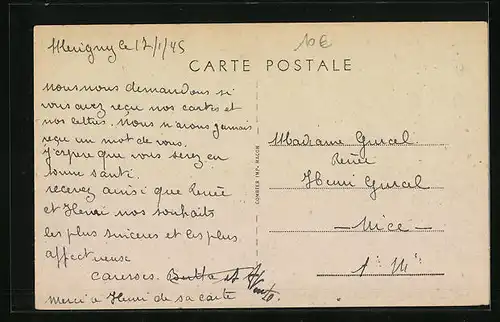 Merigny le 12/1/45
10€
CARTE POSTALE
nous nous demandons si
vous avez reçu nos cartes et
nos lettres. Nous n'avons jamais
reçu un mot de vous.
J'espere que vous serez en
bonne santé.
recevez ainsi que Renée
et Henri nos souhaits
les plus sinceres et les plus
affectueuse
caresses. Bertha et
Merci a Henri de sa carte
COMBIER IMP. MACON
Madame Gueal
Renée
Henri Gueal
— Nice —